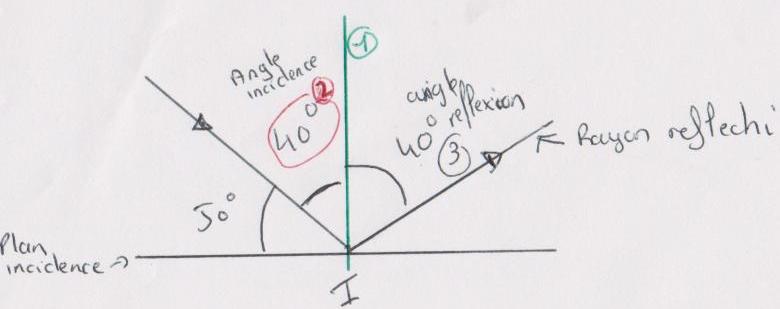 1
Angle
incidence
2
40°
angle
reflexion
40°
3
Rayon reflechi
50°
Plan
incidence →
I